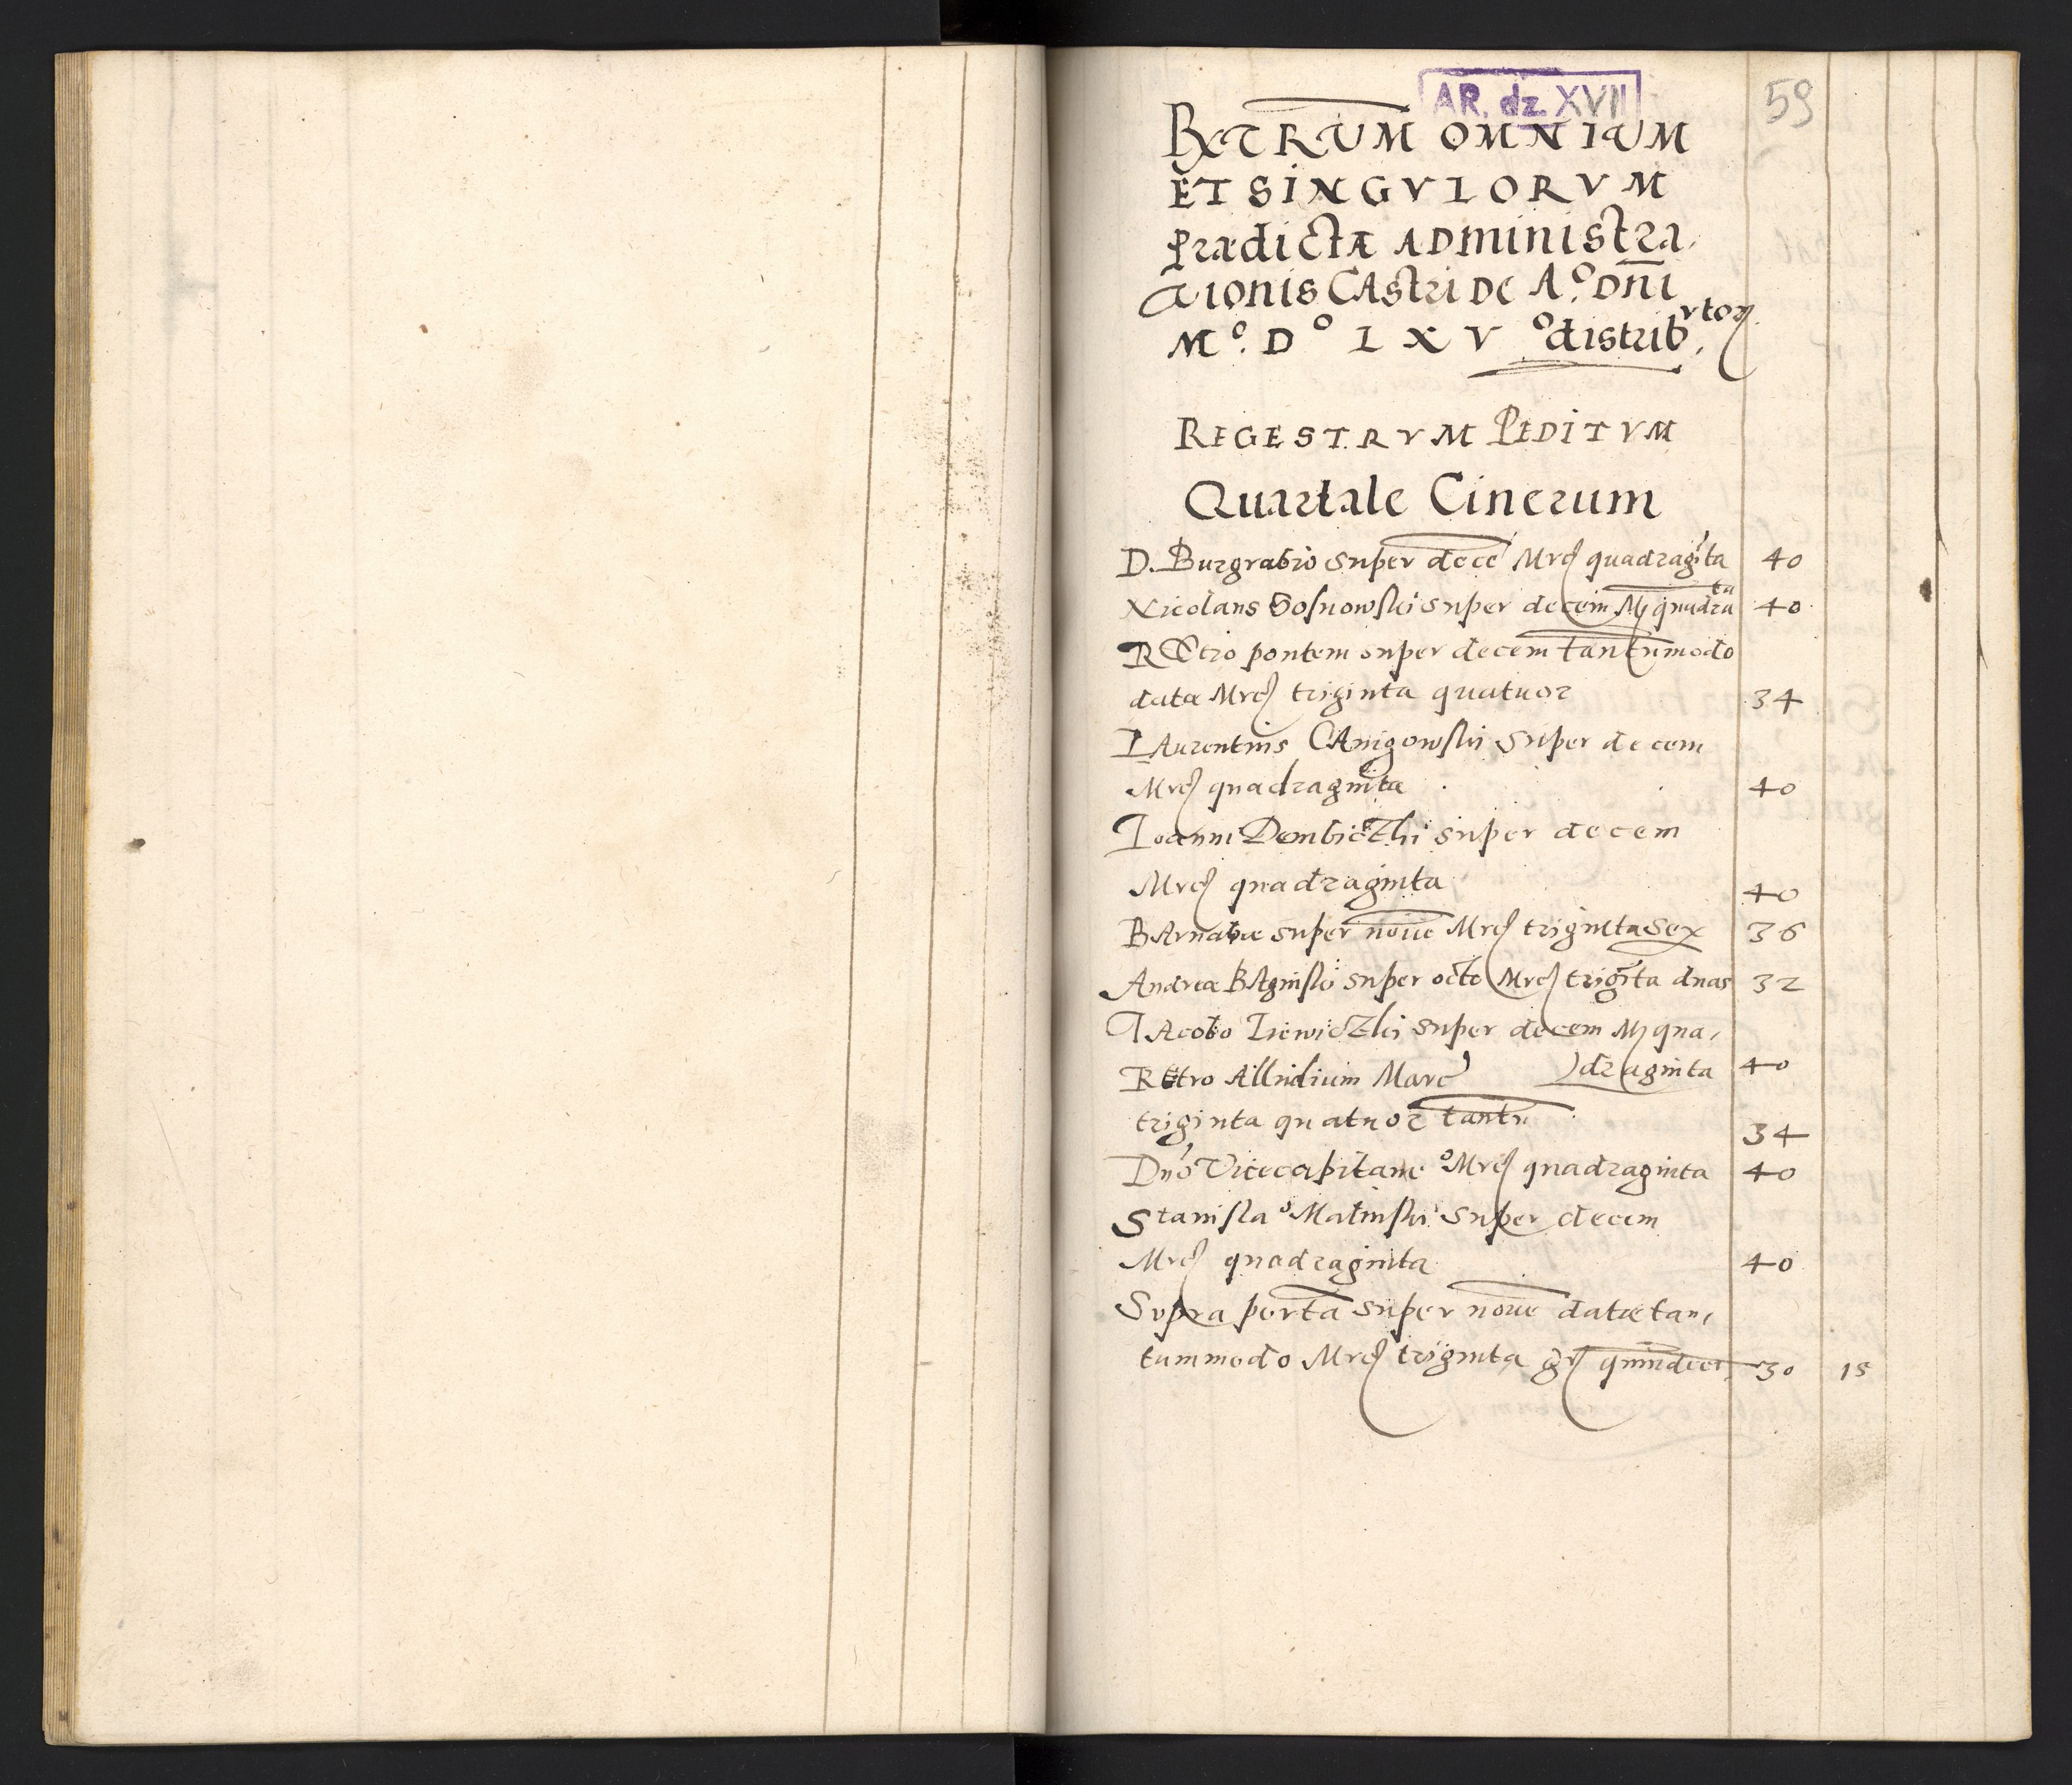 AR. dz. XVII
59
RXTRUM OMNIUM
ET SINGVLORVM
prædictæ ADministra,
tionis CAstri DE A.º Dñi
Mº. Dº LXVº distrib.vtorz
REGESTRVM PEDITVM
Quartale Cinerum
D. Burgrabio super decē Mrc quadragīta 40
Nicolaus Sosnowski super decem Mr quadrata 40
REtro pontem super decem tantummodo
data Mrc triginta quatuor 34
LAurentius CAnigowski super decem
Mrc quadraginta 40
Ioanni Dembiczki super decem
Mrc quadraginta 40
BArnabæ super nouē Mrc triginta sex 36
Andreæ BAginski super octo Mrc trigīta duas 32
IAcobo Liewiczki super decem Mr qua,
draginta 40
REtro Allodium Marc
triginta quatuor tantū 34
Dnō Vicecapitaneº Mrc quadraginta 40
Stanislaº Malinski super decem
Mrc quadraginta 40
Supra portā super nouē datæ tan,
tummodo Mrc triginta gr quindecē 30 15